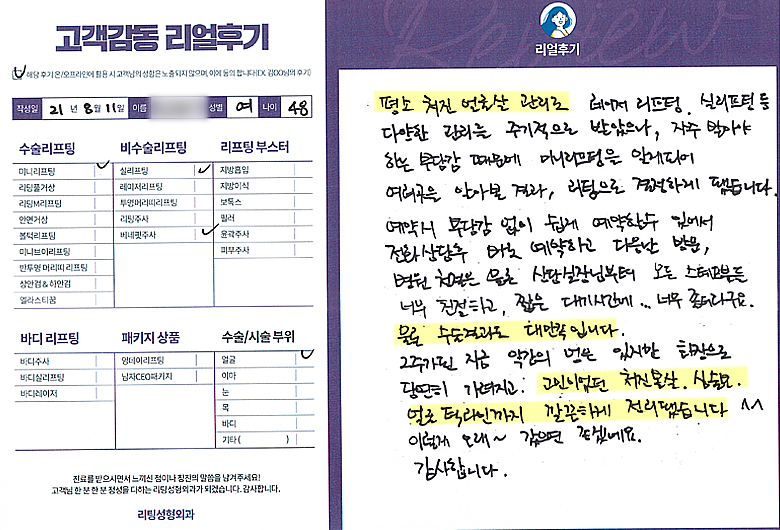 고객감동 리얼후기
해당 후기 온/오프라인에 활용 시 고객님의 성함은 노출되지 않으며, 이에 동의 합니다(EX. 김OO님의 후기)
작성일 21년 8월 11일 이름 성별 여 나이 48
수술리프팅 비수술리프팅 리프팅 부스터
미니리프팅 실리프팅 지방흡입
리팅풀거상 레이저리프팅 지방이식
리팅M리프팅 투명머리띠리프팅 보톡스
안면거상 리팅주사 필러
볼턱리프팅 베네핏주사 윤곽주사
미니브이리프팅 피부주사
반투명 머리띠 리프팅
상안검 & 하안검
엘라스티꿈
바디 리프팅 패키지 상품 수술/시술 부위
바디주사 얼굴
바디실리프팅 남자CEO패키지 이마
바디레이저 눈
목
바디
기타 ( )
진료를 받으시면서 느끼신 점이나 칭찬의 말씀을 남겨주세요!
고객님 한 분 한 분 정성을 다하는 리팅성형외과가 되겠습니다. 감사합니다.
리팅성형외과
Review
리얼후기
평소 처진 얼굴살 관리로 레이저 리프팅. 실리프팅 등
다양한 관리를 주기적으로 받았으나, 자주 받아야
하는 부담감 때문에 미니리프팅을 알게되어
여러곳을 알아본 결과, 리팅으로 결정하게 됐습니다.
예약시 부담감 없이 쉽게 예약할수 있어서
전화상담후 바로 예약하고 다음날 방문,
병원 첫방문 물론 상담실장님부터 모든 스텝분들
너무 친절하고, 짧은 대기시간에... 너무 좋더라구요.
물론 수술결과도 대만족입니다.
2주가된 지금 약간의 멍은 있지만 화장으로
당연히 가려지고. 고민이었던 처진볼살. 심술보.
얼굴 턱라인까지 깔끔하게 정리됐습니다 ^^
이렇게 오래~ 갔으면 좋겠네요.
감사합니다.